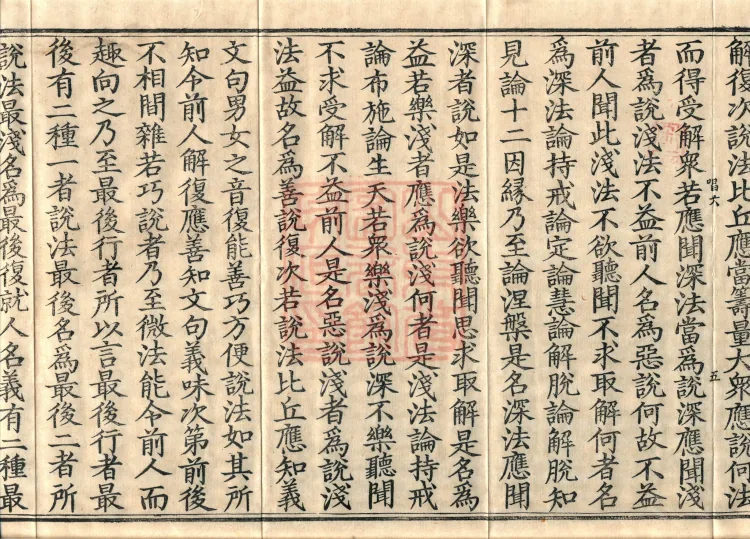 解復次說法比丘應當籌量大衆應說何法
而得受解衆若應聞深法當爲說深應聞淺
者爲說淺法不益前人名爲惡說何故不益
前人聞此淺法不欲聽聞不求取解何者名
爲深法論持戒論定論慧論解脫論解脫知
見論十二因緣乃至論涅槃是名深法應聞
深者說如是法樂欲聽聞思求取解是名爲
益若樂淺者應爲說淺何者是淺法論持戒
論布施論生天若衆樂淺爲說深不樂聽聞
不求受解不益前人是名惡說淺者爲說淺
法益故名爲善說復次若說法比丘應知義
文句男女之音復能善巧方便說法如其所
知令前人解復應善知文句義味次第前後
不相間雜若巧說者乃至微法能令前人而
趣向之乃至最後行者所以言最後行者最
後有二種一者說法最後名爲最後二者所
說法最淺名爲最後復就人名義有二種最
唱大
五